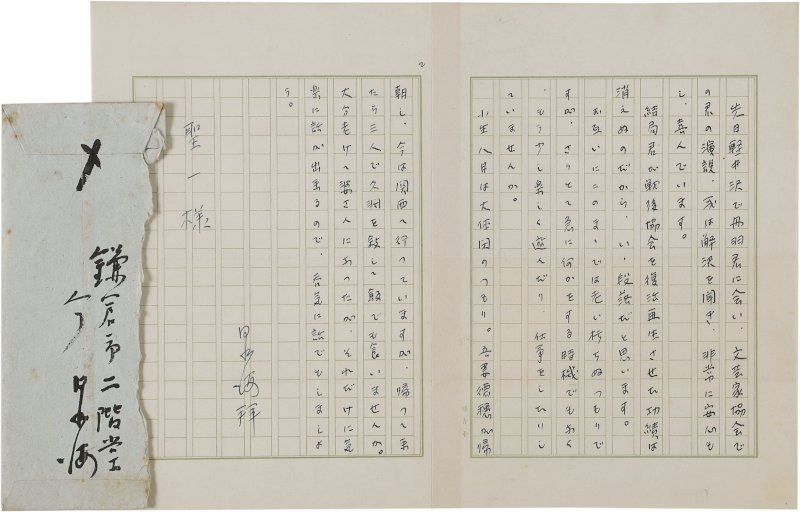 先日軽井沢で丹羽君に会い、文芸家協会で
の君の演説、又は解決を聞き、非常に安心も
し、喜んでいます。
結局君が戦後協会を復活再生させた功績は
消えぬのだから、いゝ段落だと思います。
お互いにこのまゝでは老い朽ちぬつもりで
すが、さりとて急に何かをする時機でもなく
、もう少し楽しく遊んだり、仕事をしたりし
ていませんか。
小生八月は大体閑のつもり。吾妻徳穂が帰
2
朝し、今は関西へ行っていますが、帰って来
たら三人で久闊を叙して飯でも食いませんか。
大分老けて婆さんになったが、それだけに気
楽に話が出来るので、呑気に話でもしましょ
う。
日出海拝
聖一様
〆
鎌倉市二階堂
今日出海